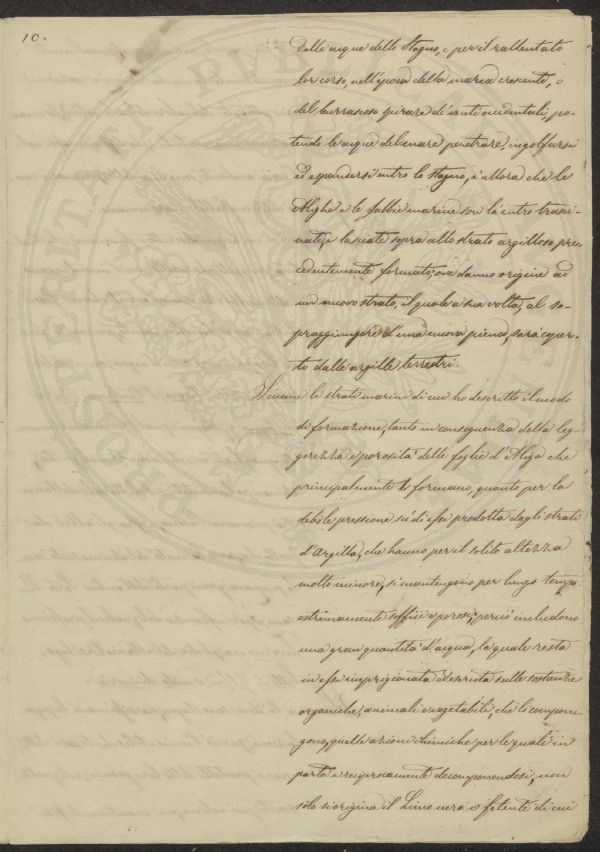 10.
dalle acque dello Stagno, e per il rallentato
lor corso, nell'epoca della marea crescente, o
del burrascoso spirare di venti occidentali, po-
tendo le acque del mare penetrare, ingolfarsi
ed espandersi entro lo Stagno, è allora che le
Alighe e le sabbie marine son là entro trasci-
nate, e lasciate sopra allo strato argilloso pre-
cedentemente formato; ove danno origine ad
un nuovo strato, il quale a sua volta, al so-
praggiungere d'una nuova piena, sarà coper-
to dalle argille terrestri.
Siccome li strati marini di cui ho descritto il modo
di formazione, tanto in conseguenza della leg-
gerezza e porosità delle foglie d'Aliga che
principalmente li formano, quanto per la
debole pressione su di essi prodotta dagli strati
d'Argilla, che hanno per il solito altezza
molto minore, si mantengono per lungo tempo
estremamente soffici e porosi; perciò includono
una gran quantità d'acqua, la quale resta
in essi imprigionata ed esercita sulle sostanze
organiche, animali e vegetabili, che li compon-
gono, quelle azioni chimiche per le quali in
parte e reciprocamente decomponendosi, non
solo si origina il Limo nero e fetente di cui